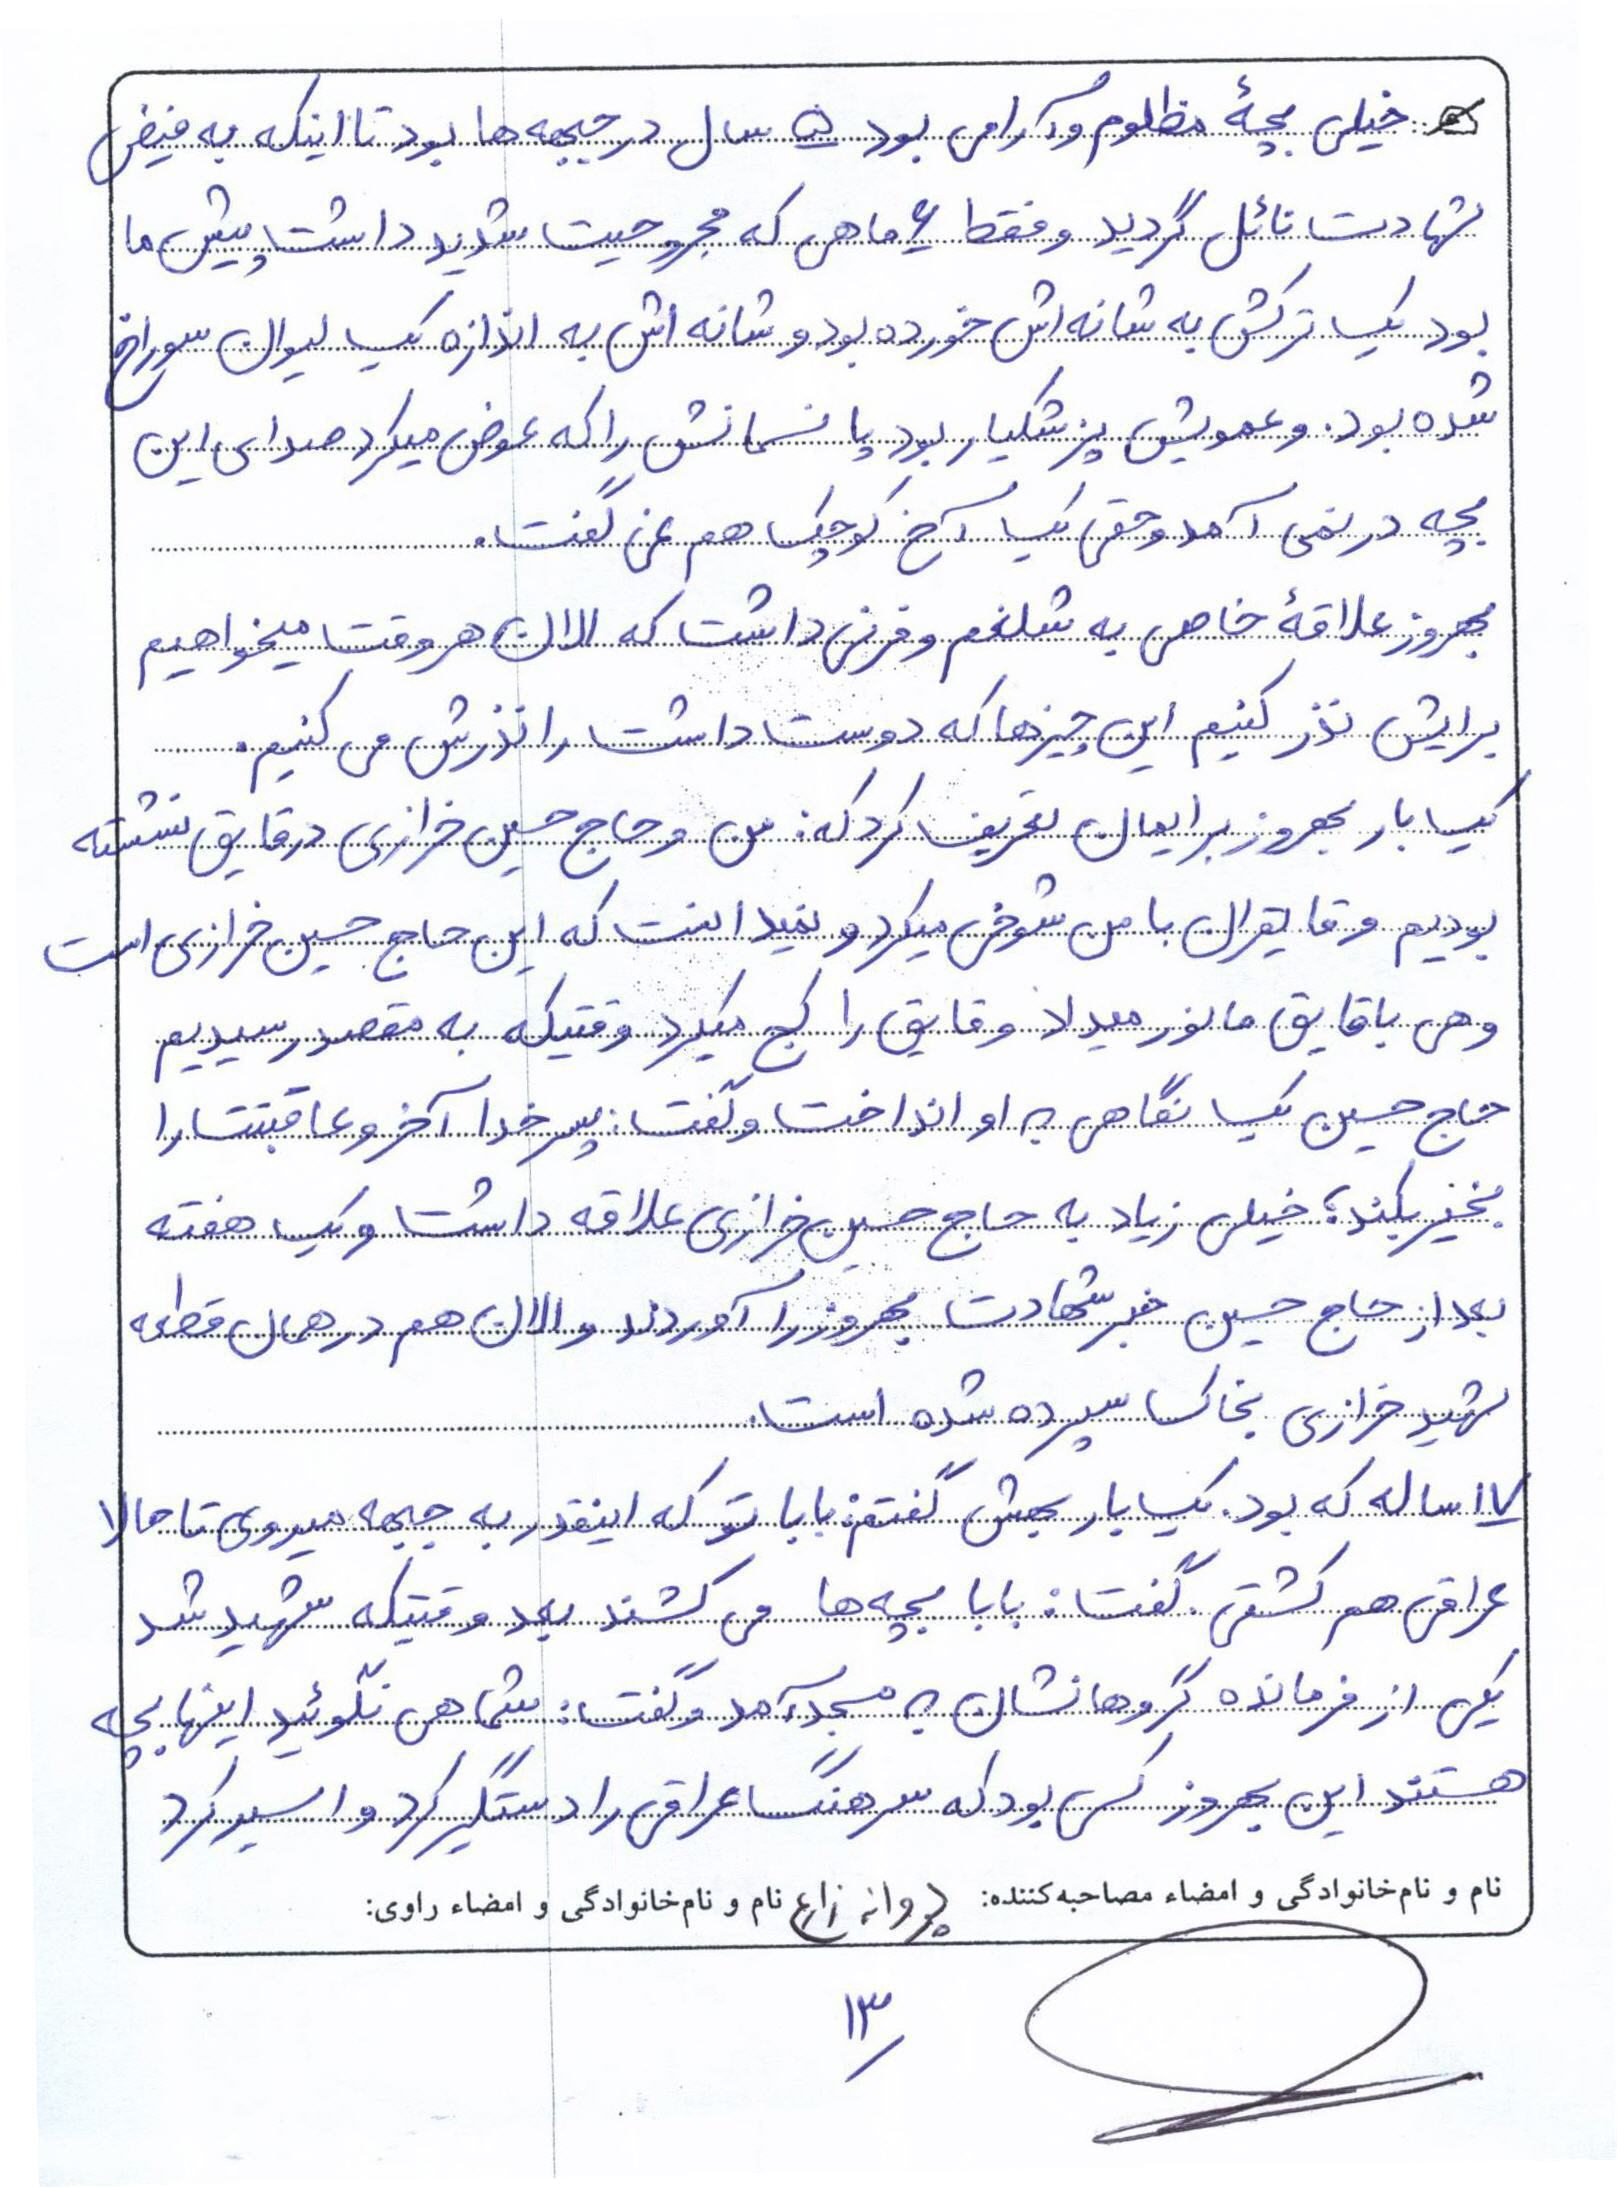 خیلی بچۀ مظلوم و آرامی بود ۵ سال در جبهه ها بود تا اینکه به فیض
شهادت نائل گردید و فقط ۶ ماهی که مجروحیت شدید داشت پیش ما
بود یک ترکش به شانه اش خورده بود و شانه اش به اندازه یک لیوان سوراخ
شده بود. و عمویش پزشکیار بود پانسمانش را که عوض میکرد صدای این
بچه در نمی آمد و حتی یک آخ کوچک هم نمی گفت.
بهروز علاقۀ خاصی به شلغم و فرنی داشت که الان هر وقت میخواهیم
برایش نذر کنیم این چیزها که دوست داشت را نذرش می کنیم.
یک بار بهروز برایمان تعریف کرد که: من و حاج حسین خرازی در قایق نشسته
بودیم و قایقران با من شوخی میکرد و نمیدانست که این حاج حسین خرازی است
و هی با قایق مانور میداد و قایق را کج میکرد وقتیکه به مقصد رسیدیم
حاج حسین یک نگاهی به او انداخت و گفت: پسر خدا آخر و عاقبتت را
بخیر بکند؛ خیلی زیاد به حاج حسین خرازی علاقه داشت و یک هفته
بعد از حاج حسین خبر شهادت بهروز را آوردند و الان هم در همان قطعه
شهید خرازی بخاک سپرده شده است.
۱۷ ساله که بود. یک بار بهش گفتم: بابا تو که اینقدر به جبهه میروی تا حالا
عراقی هم کشتی. گفت: بابا بچه ها می کشند بعد وقتیکه شهید شد
یکی از فرمانده گروهانشان به مسجد آمد و گفت: شما هی نگوئید اینها بچه
هستند این بهروز کسی بود که سرهنگ عراقی را دستگیر کرد و اسیر کرد
نام و نام خانوادگی و امضاء مصاحبه کننده: پروانه زارع نام و نام خانوادگی و امضاء راوی:
۱۳